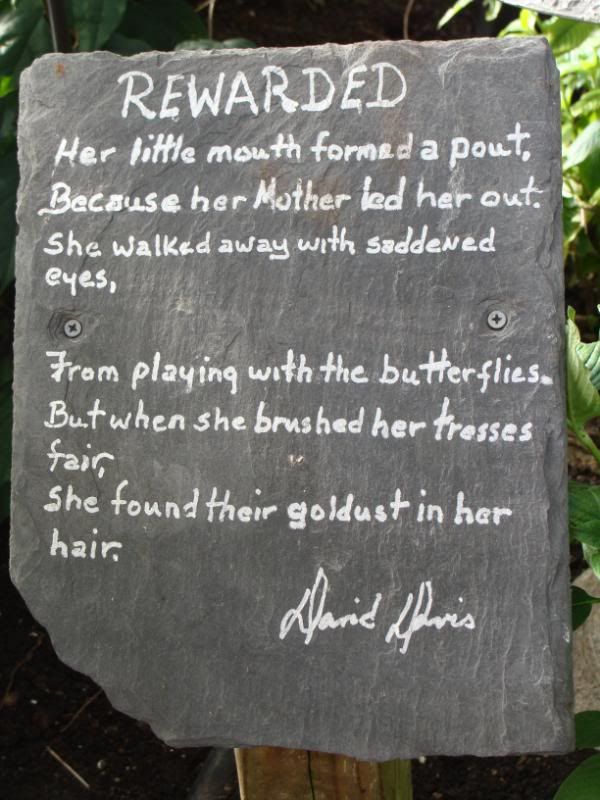 REWARDED
Her little mouth formed a pout,
Because her Mother led her out.
She walked away with saddened
eyes,
From playing with the butterflies.
But when she brushed her tresses
fair,
She found their goldust in her
hair.
David Davis